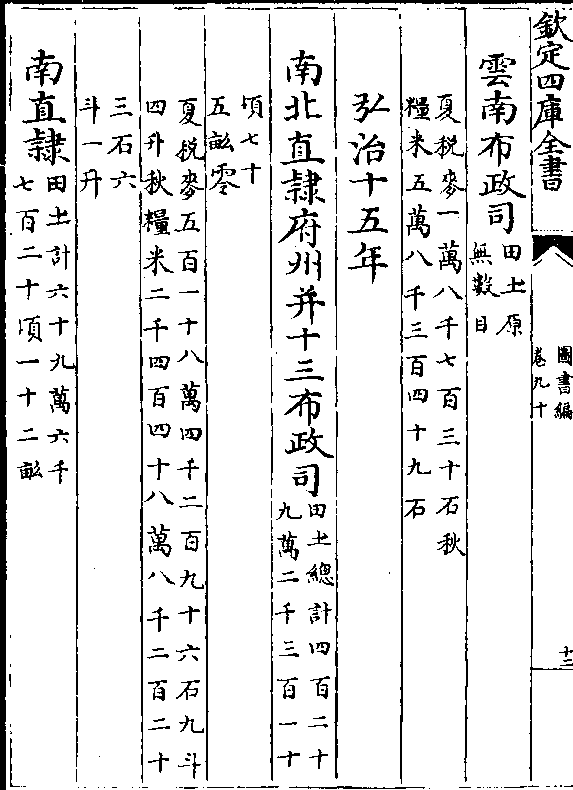 欽定四庫全書
圖書編
卷九十
十二
雲南布政司田土原
無數目
夏税麥一萬八千七百三十石秋
糧米五萬八千三百四十九石
弘治十五年
南北直隷府州并十三布政司田土總計四百二十
九萬二千三百一十
頃七十
五畝零
夏税麥五百一十八萬四千二百九十六石九斗
四升秋糧米二千四百四十八萬八千二百二十
三石六
斗一升
南直隷田土計六十九萬六千
七百二十頃一十二畝